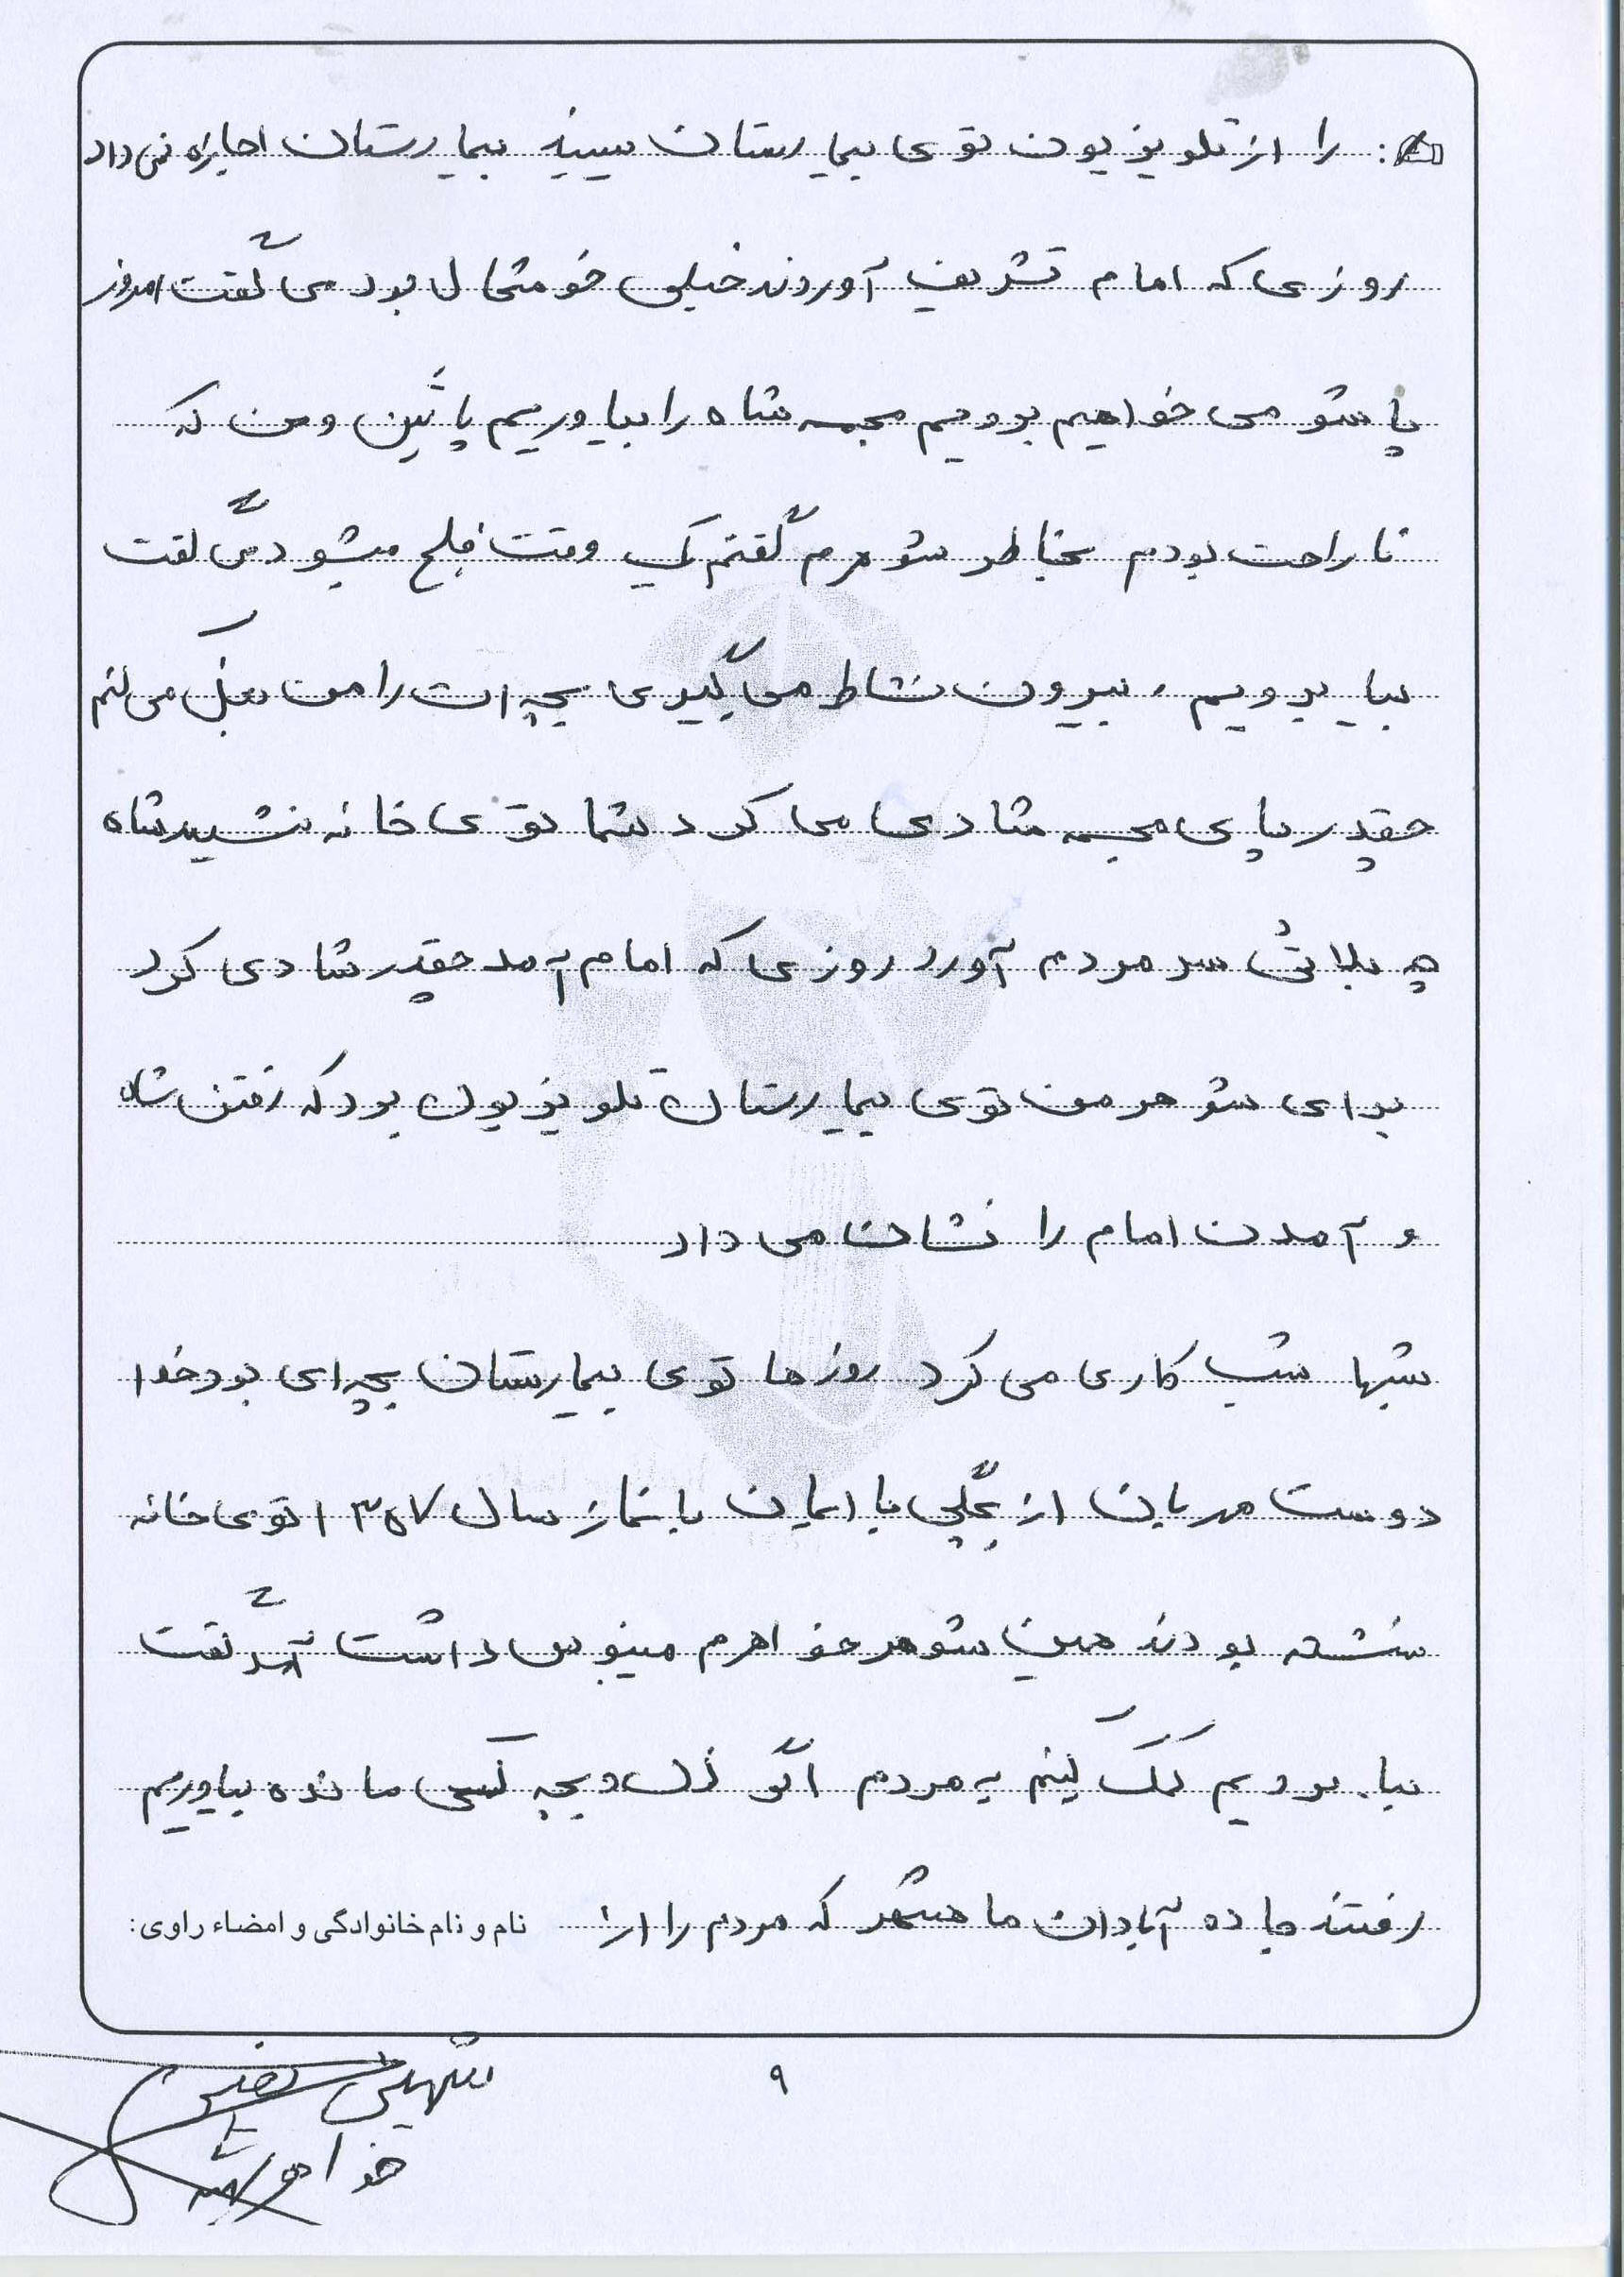 را از تلویزیون توی بیمارستان ببینید بیمارستان اجازه نمی داد
روزی که امام تشریف آوردند خیلی خوشحال بود می گفت امروز
پاشو می خواهیم برویم مجسمه شاه را بیاوریم پائین و من که
ناراحت بودم بخاطر شوهرم گفتم یک وقت فلج میشود می گفت
بیا برویم بیرون نشاط می گیری بچه ات را من بغل می کنم
چقدر پای مجسمه شادی می کرد شما توی خانه شاه
چه بلائی سر مردم آورد روزی که امام آمد چقدر شادی کرد
برای شوهر من توی بیمارستان تلویزیون بود که رفتن شاه
و آمدن امام را نشان می داد
شبها شب کاری می کرد روزها توی بیمارستان بچه ای بود خدا
دوست مهربان از بچگی با ایمان با نماز سال ۱۳۵۷ توی خانه
نشسته بودند همین شوهر خواهرم مینوبوس داشت آمد گفت
بیا برویم کمک کنیم به مردم اگر زن و بچه کسی مانده بیاوریم
رفتند جاده آبادان ماهشهر که مردم را از
نام و نام خانوادگی و امضاء راوی:
۹
خواهر شهید